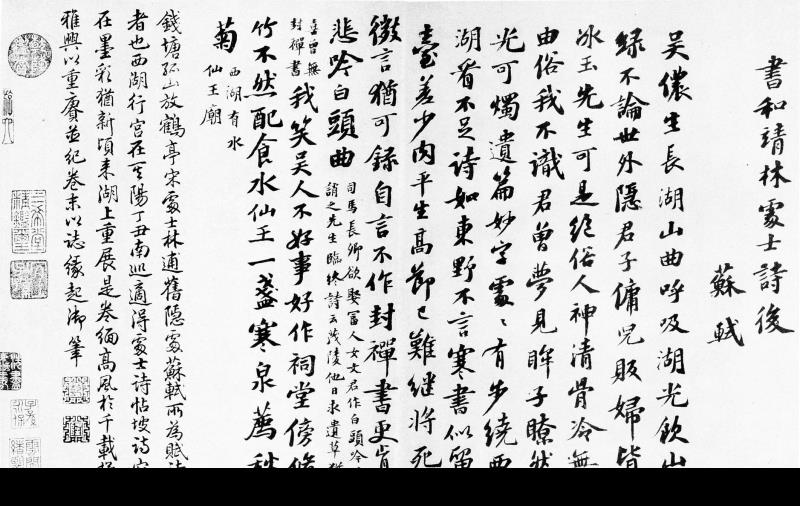 書和靖林處士詩後
蘇軾
吳儂生長湖山曲呼吸湖光飲山
綠不論世外隱君子傭兒販婦皆
冰玉先生可是絕俗人神清骨冷無
由俗我不識君曾夢見眸子瞭然
光可燭遺篇妙字處〻有步繞西
湖看不足詩如東野不言寒書似留
臺差少肉平生高節已難繼將死
微言猶可錄自言不作封禪書更肯
悲吟白頭曲
司馬長卿欲娶富人女文君作白頭吟
誚之先生臨終詩云茂陵他日求遺草猶
喜曾無
封禪書
我笑吳人不好事好作祠堂傍修
竹不然配食水仙王一盞寒泉薦秋
菊
西湖有水
仙王廟
錢塘孤山放鶴亭宋處士林逋舊隱處蘇軾所為賦詩
者也西湖行宮在其陽丁丑南巡適得處士詩帖坡詩
在墨彩猶新頃來湖上重展是卷緬高風於千載
雅興以重賡並紀卷末以誌緣起御筆